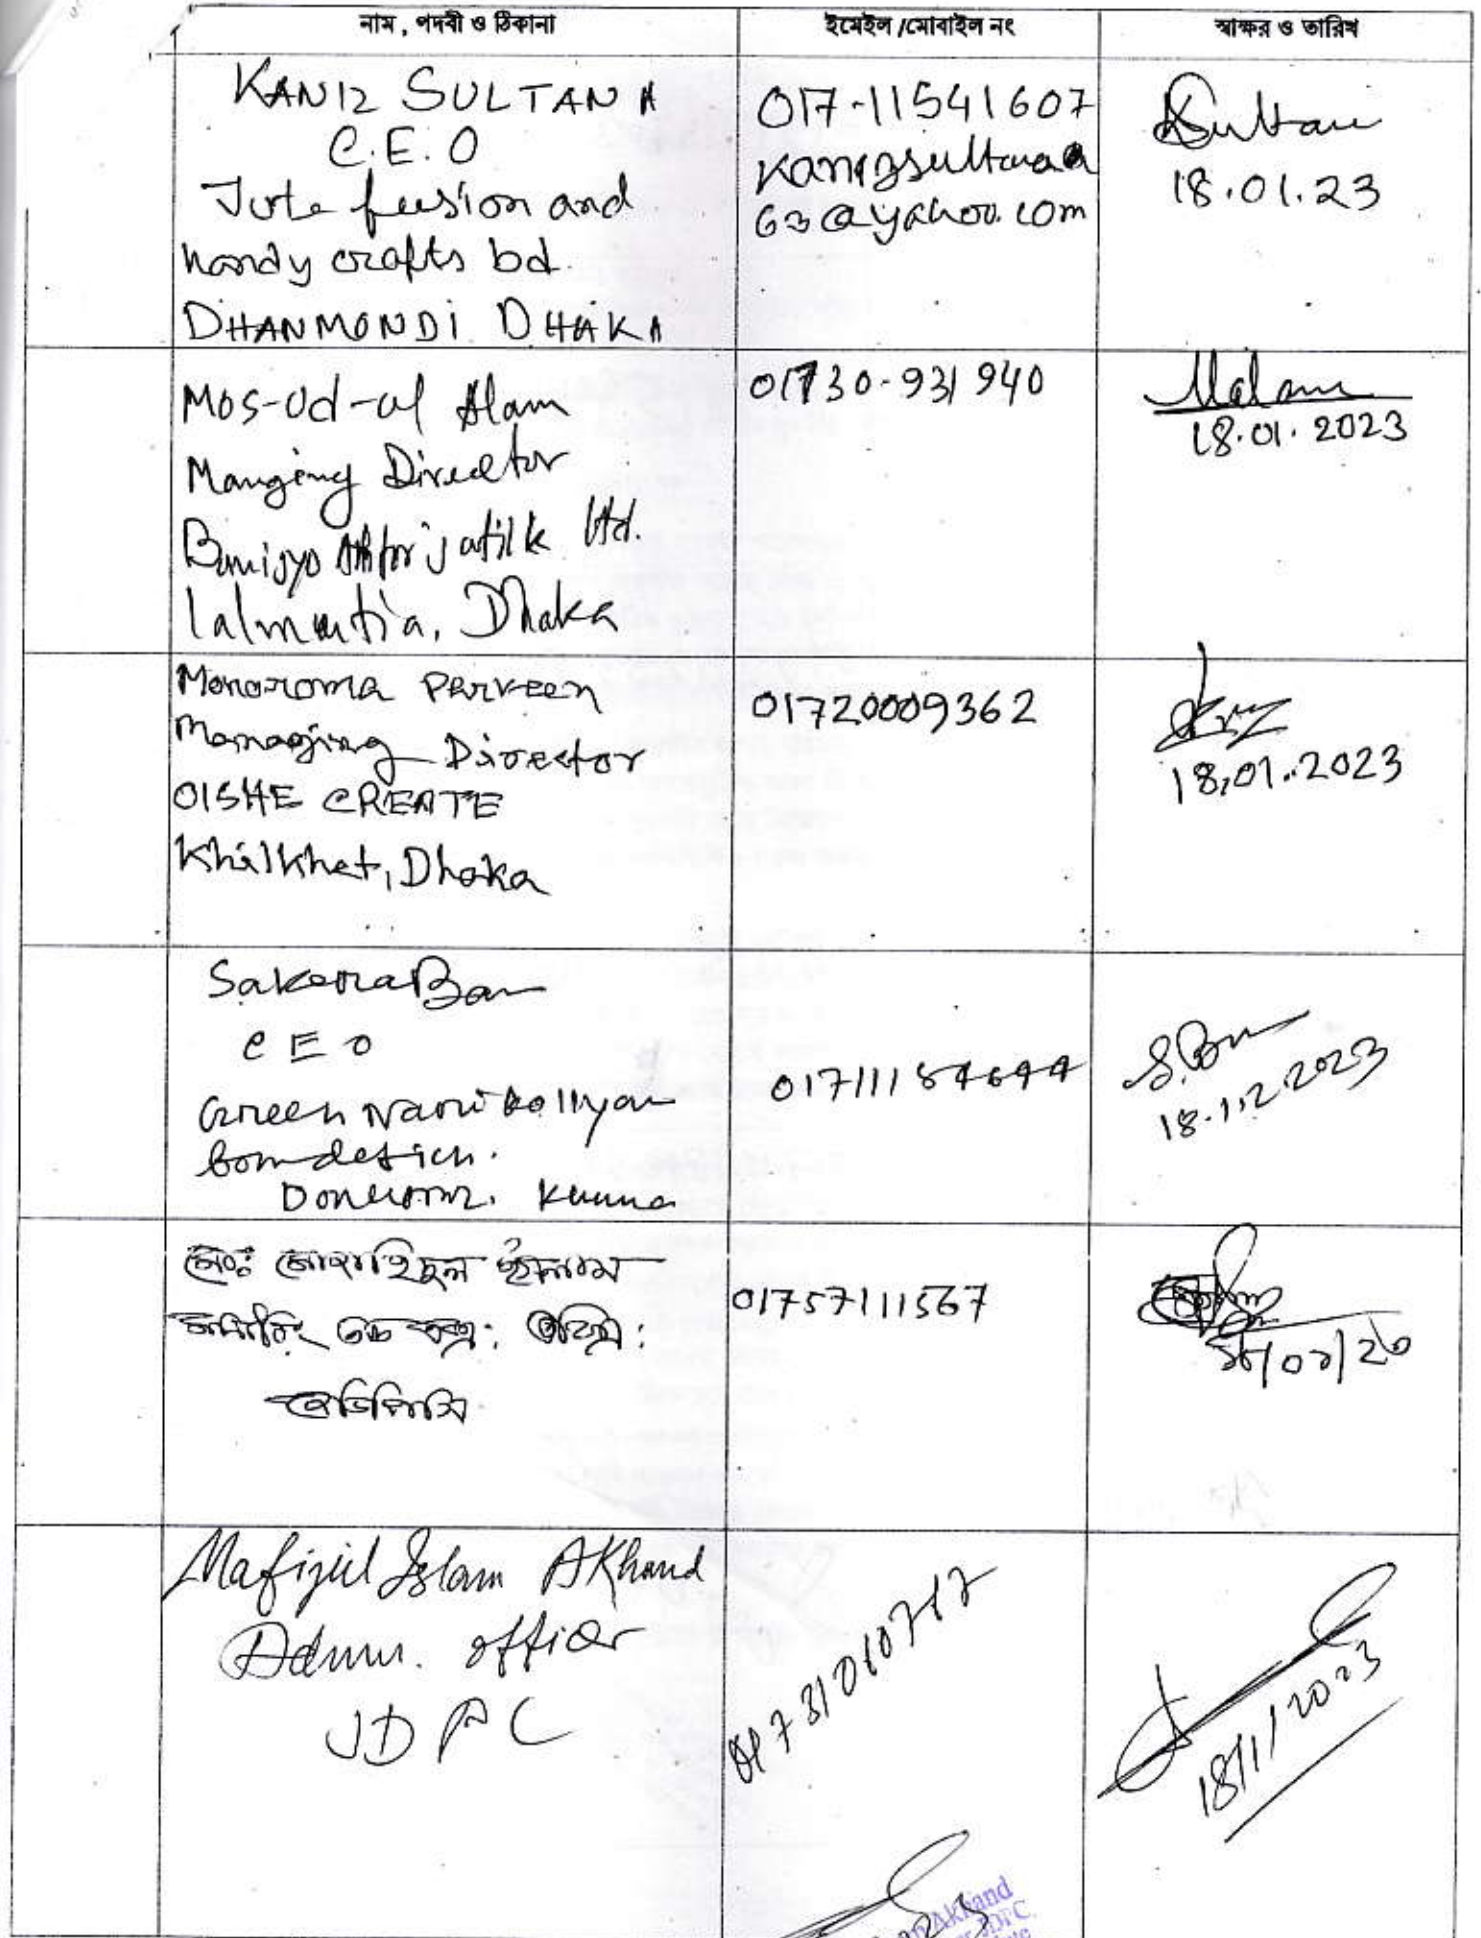 নাম, পদবী ও ঠিকানা
ইমেইল /মোবাইল নং
স্বাক্ষর ও তারিখ
KANIZ SULTANA
C.E.O
Jute fusion and
handy crafts bd.
DHANMONDI DHAKA
017-11541607
63@yahoo.com
Sultan
18.01.23
Mos-ud-ul Alam
Manging Director
Ltd.
lalmatia, Dhaka
01730-931940
18.01.2023
Monoroma Parveen
Managing Director
OISHE CREATE
Khilkhet, Dhaka
01720009362
18.01.2023
Sakera Banu
CEO
Green Nari Kollyan
01711184644
2023
মোঃ ইসলাম
জেডিপিসি
01757111567
১৮/০১/২৩
Mafizul Islam AKhand
Admn. officer
JDPC
18/1/2023
Akhand
JDPC